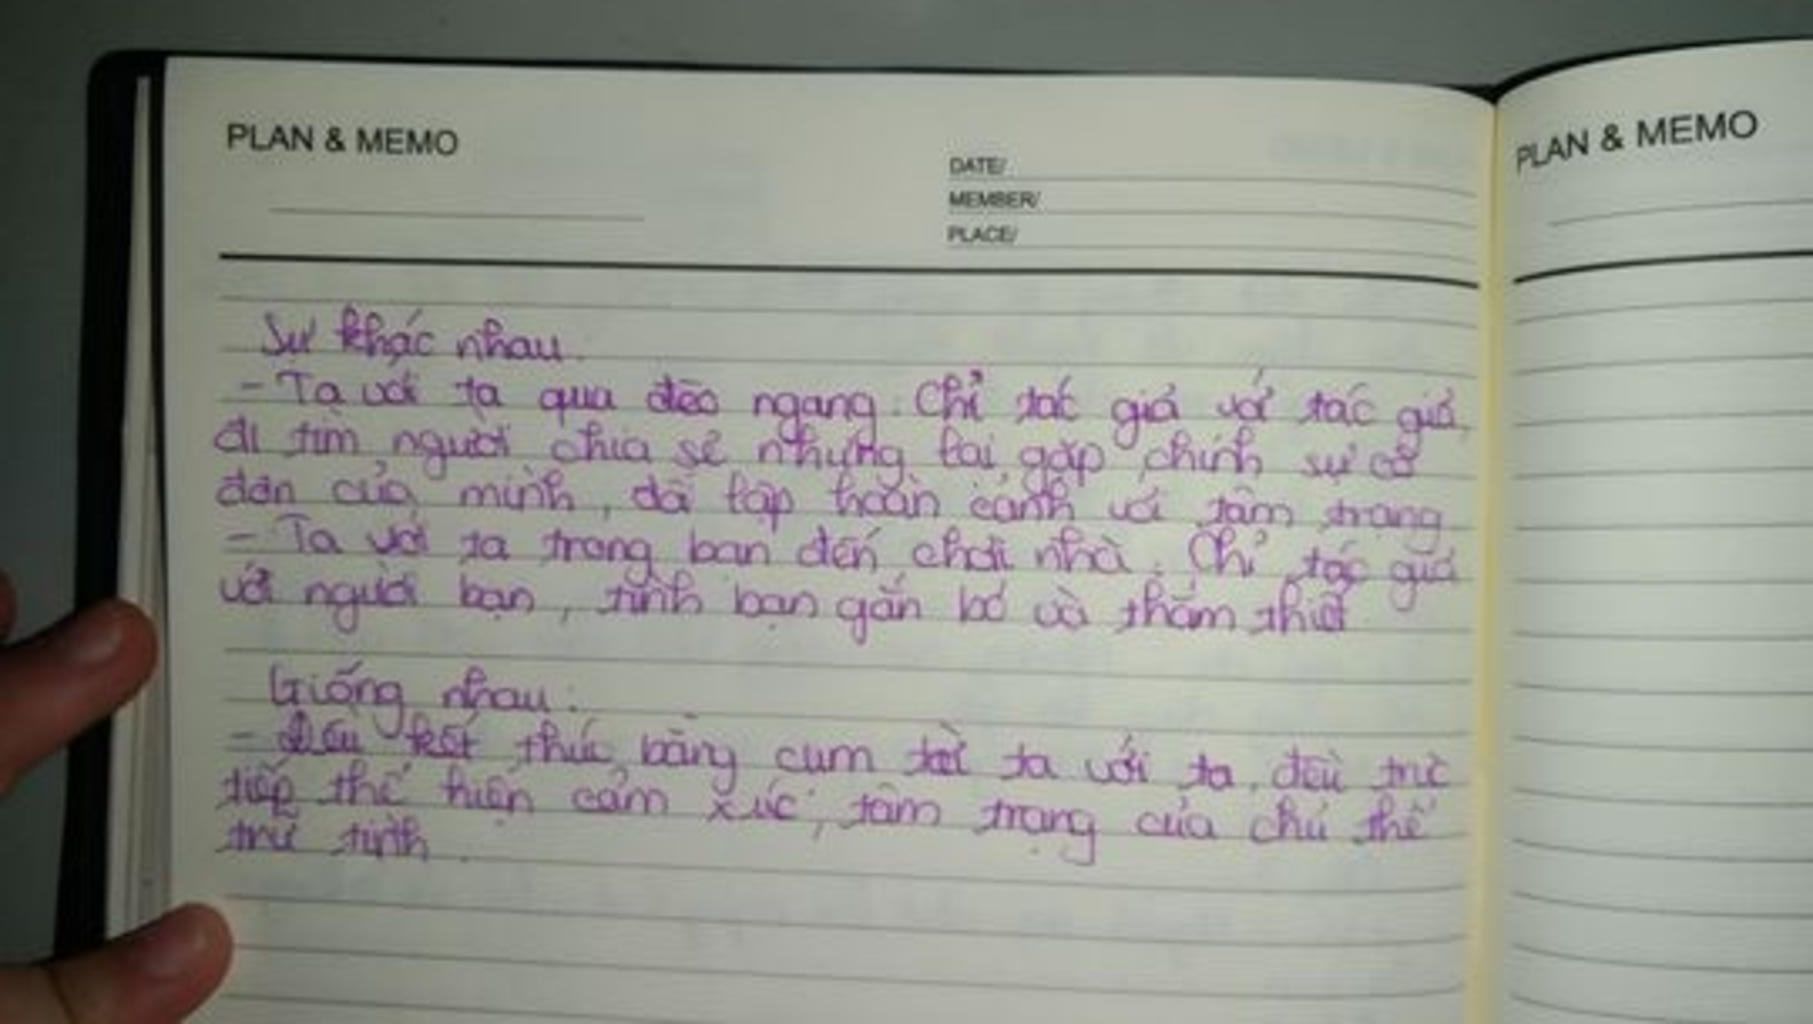 PLAN & MEMO
DATE/
MEMBER/
PLACE/
Sự khác nhau.
- Ta với ta qua đèo ngang. Chỉ tác giả với tác giả,
đi tìm người chia sẻ nhưng lại gặp chính sự cô
đơn của mình, đối lập hoàn cảnh với tâm trạng
- Ta với ta trong bạn đến chơi nhà. Chỉ tác giả
với người bạn, tình bạn gắn bó và thắm thiết
Giống nhau:
- Đều kết thúc bằng cụm từ ta với ta, đều trực
tiếp thể hiện cảm xúc, tâm trạng của chủ thể
trữ tình.
PLAN & MEMO